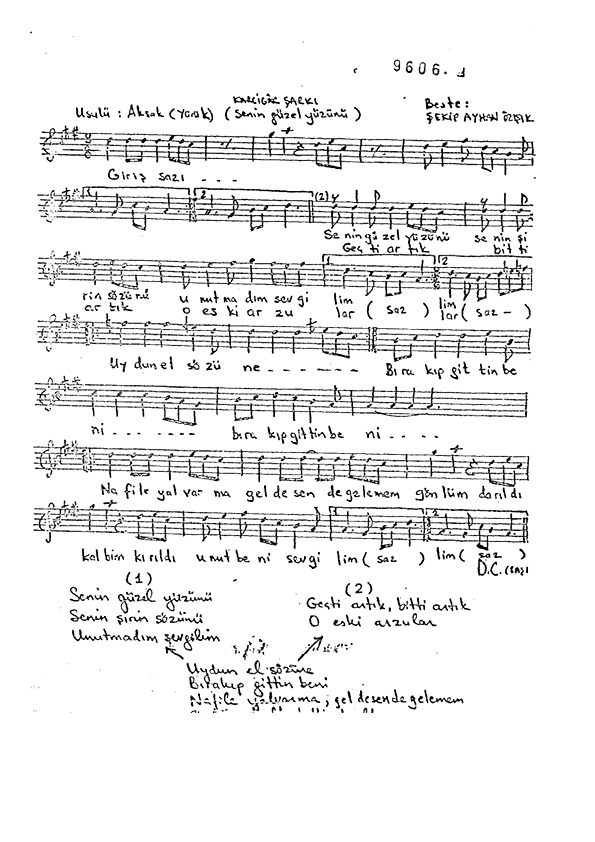 9606.
KARCIĞAR ŞARKI
Usulü : Aksak (Yürük) (Senin güzel yüzünü) Beste:
ŞEKİP AYHAN ÖZIŞIK
Giriş sazı - - -
1 2 (2)
Se nin gü zel yü zünü se nin şi
Geç ti ar tık bit ti
1 2
rin sözünü u nut ma dım sev gi lim ( saz ) lim
ar tık o es ki ar zu lar lar ( saz - )
Uy dun el sö zü ne - - - - - - Bı ra kıp git tin be
ni - - - - - - bıra kıp gittin be ni - - - -
Na file yal var ma gel de sen de gelemem gönlüm darıldı
1 2
kalbim kırıldı unut be ni sevgi lim ( saz ) lim ( saz )
D.C. (sazı
(1) (2)
Senin güzel yüzünü Geçti artık, bitti artık
Senin şirin sözünü O eski arzular
Unutmadım sevgilim
Uydun el sözüne
Bırakıp gittin beni
Nafile yalvarma, gel desende gelemem